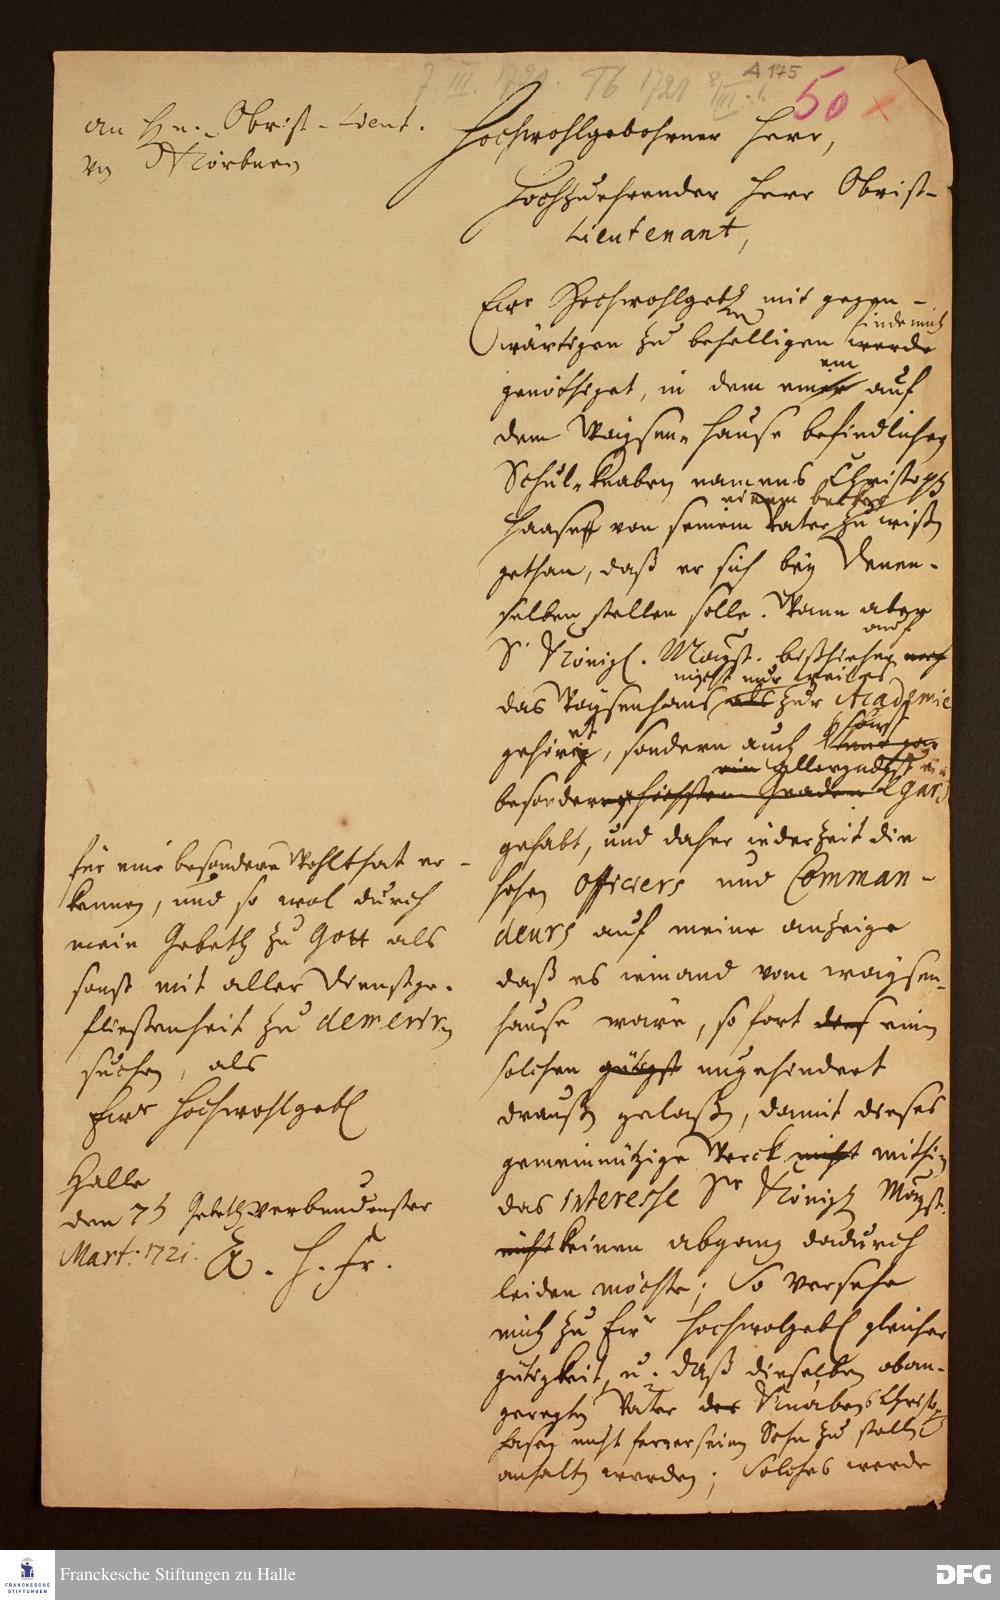 7. III. 1721. Tb 1721 8/III. 1.
A 175
50
an Hn. Obrist-Lieut.
von
Hochwohlgebohrner Herr,
Hochzuehrender Herr Obrist-
Lieutenant,
Ewr Hochwohlgeb. mit gegen-
wärtigen zu behelligen werde
finde mich
genöthiget, in dem einer auf
ein
dem Waysen-Hause befindlicher
Schul-Knaben namens Christoph
Haase von seinem Vater zu wißen
gethan, daß er sich bey Denen-
selben stellen solle. Wann aber
Sr Königl. Mayst. bißhieher
auf
das Waysenhaus als zur Academie
nicht nur
gehörig, sondern auch
besondere höchsten Gnaden
gehabt, und daher iederzeit die
hohen Officiers und Comman-
deurs auf meine anzeige
daß es iemand vom waysen-
hause wäre, so fort einen
solchen gütigst ungehindert
draußen gelaßen, damit dieses
gemeinnützige Werck nicht mithin
das Interesse Sr Königl. Mayst.
nicht keinen abgang dadurch
leiden möchte; So versehe
mich zu Ewr Hochwolgeb. gleicher
gütigkeit, u. daß dieselben oban-
geregten Vater des Knabens Christoph
Hasen nicht ferner seinen Sohn zu stellen
anhalten werden; Solches werde
für eine besondere Wohlthat er-
kennen, und so wol durch
mein Gebeth zu Gott als
sonst mit aller Dienstge-
fließenheit zu demeriren
suchen, als
Ewr Hochwohlgeb.
Halle
den 7 Gebeth verbundenster
Mart. 1721. A. H. Fr.
FRANCKESCHE
STIFTUNGEN
Franckesche Stiftungen zu Halle
DFG